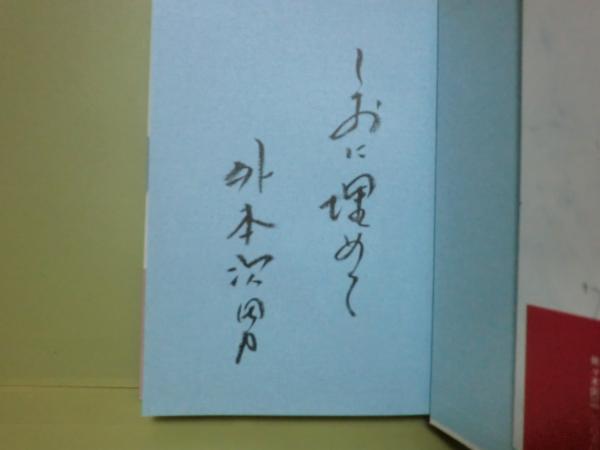 しおに埋めて
外本次男